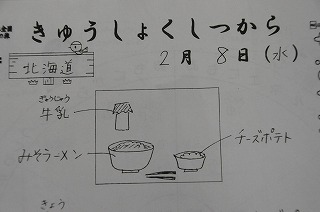 きゅうしょくしつから
2月 8日(水)
北海道
ぎゅうにゅう
牛乳
みそラーメン
チーズポテト
きょう